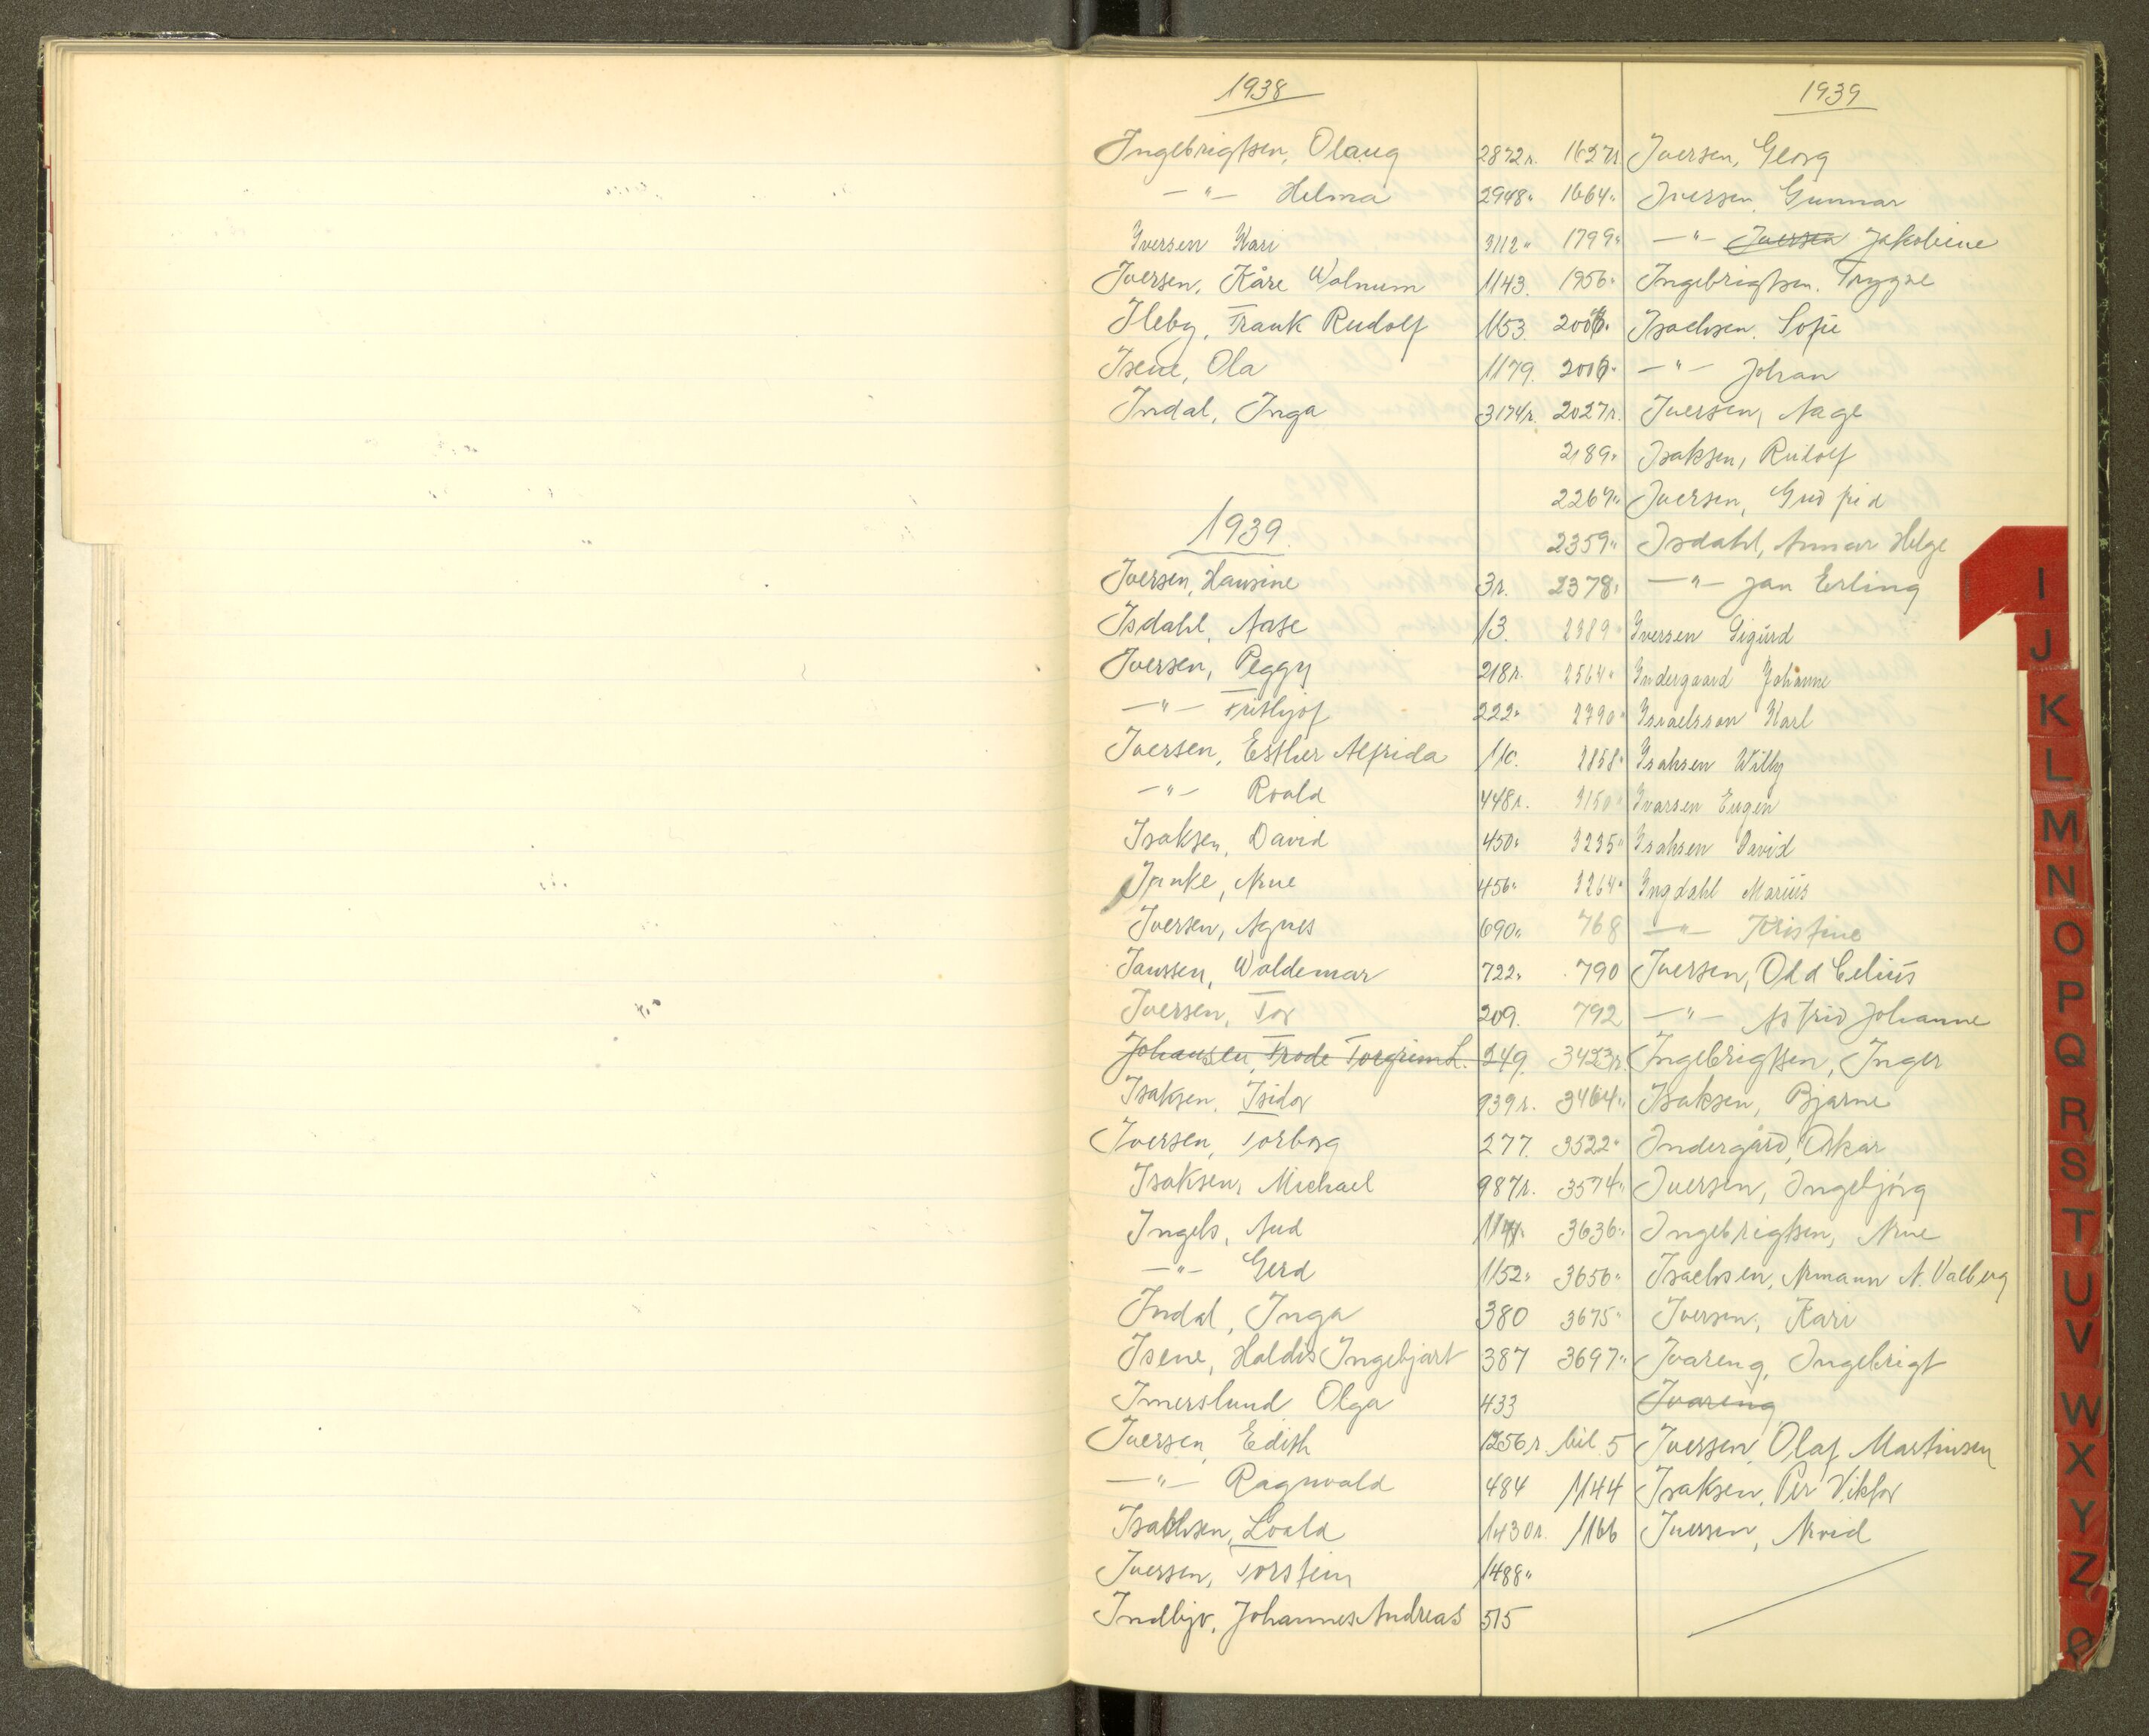 1938
Ingebrigtsen, Olaug 2872r.
—"— Helma 2948"
Iversen Kari 3112"
Iversen, Kåre Walnum 1143.
Ileby, Frank Rudolf 1153.
Isene, Ola 1179.
Indal, Inga 3174r.
1939
Iversen, Hansine 3r.
Isdahl, Aase 13.
Iversen, Peggy 218r.
—"— Frithjof 222"
Iversen, Esther Alfrida 110.
—"— Roald 448r.
Isaksen, David 450"
Janke, Arne 456"
Iversen, Agnes 690"
Janssen, Waldemar 722"
Iversen, Tor 209.
Johansen, Frode Torgrim L. 249.
Isaksen, Isidor 939r.
Iversen, Torborg 277.
Isaksen, Michael 987r.
Ingels, Aud
—"— Gerd 1152"
Indal, Inga 380
Isene, Haldis Ingebjørt 387
Imerslund Olga 433
Iversen, Edith 1256r.
—"— Ragnvald 484
Isachsen, Loala 1430r.
Iversen, Torstein 1488"
Indbjo, Johannes Andreas 515
1939
1627r Iversen, Georg
1664" Iversen, Gunnar
1799" —"— Iversen Jakobine
1956" Ingebrigtsen. Trygve
2006. Isachsen. Sofie
2006" —"— Johan
2027r. Iversen, Aage
2189" Isaksen, Rudolf
2267" Iversen, Gudrid
2359" Isdahl, Annar Helge
2378" —"— Jan Erling
2389" Iversen Sigurd
2564" Indergaard Johanne
2790" Israelsson Karl
2858" Isaksen Willy
3150" Ivarsen Eugen
3235" Isaksen David
3264" Ingdahl Marius
768 —"— Kristine
790 Iversen, Odd Celius
792 —"— Astrid Johanne
3423r. Ingebrigtsen, Inger
3464" Isaksen, Bjarne
3522" Indergård, Oskar
3574" Iversen, Ingebjørg
3636" Ingebrigtsen, Arne
3656" Isachsen, Armann N. Valberg
3675" Iversen, Kari
3697" Ivareng, Ingebrigt
Ivareng
bil. 5 Iversen, Olaf Martinsen
1144 Isaksen, Per Viktor
1166 Iversen, Arvid
I
J
K
L
M
N
O
P
Q
R
S
T
U
V
W
X
Y
Z
Ø